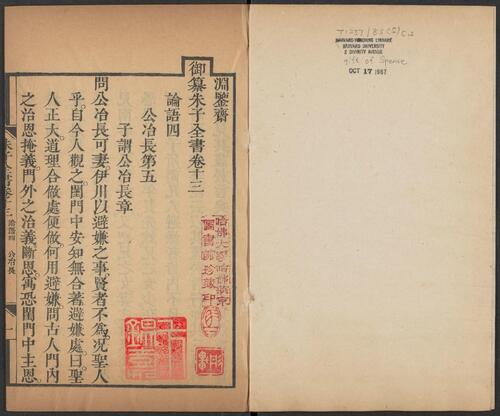 淵鑒齋
御纂朱子全書卷十三
論語四
公冶長第五
子謂公冶長章
問公冶長可妻伊川以避嫌之事賢者不爲况聖人
乎自今人觀之閨門中安知無合著避嫌處曰聖
人正大道理合做處便做何用避嫌問古人門內
之治恩掩義門外之治義斷恩寓恐閨門中主恩
朱子全書卷十三 論語四 公冶長
一
哈佛大學哈佛燕京
圖書館珍藏印
HARVARD-YENCHING LIBRARY
HARVARD UNIVERSITY
2 DIVINITY AVENUE
gift of Spence
OCT 17 1967